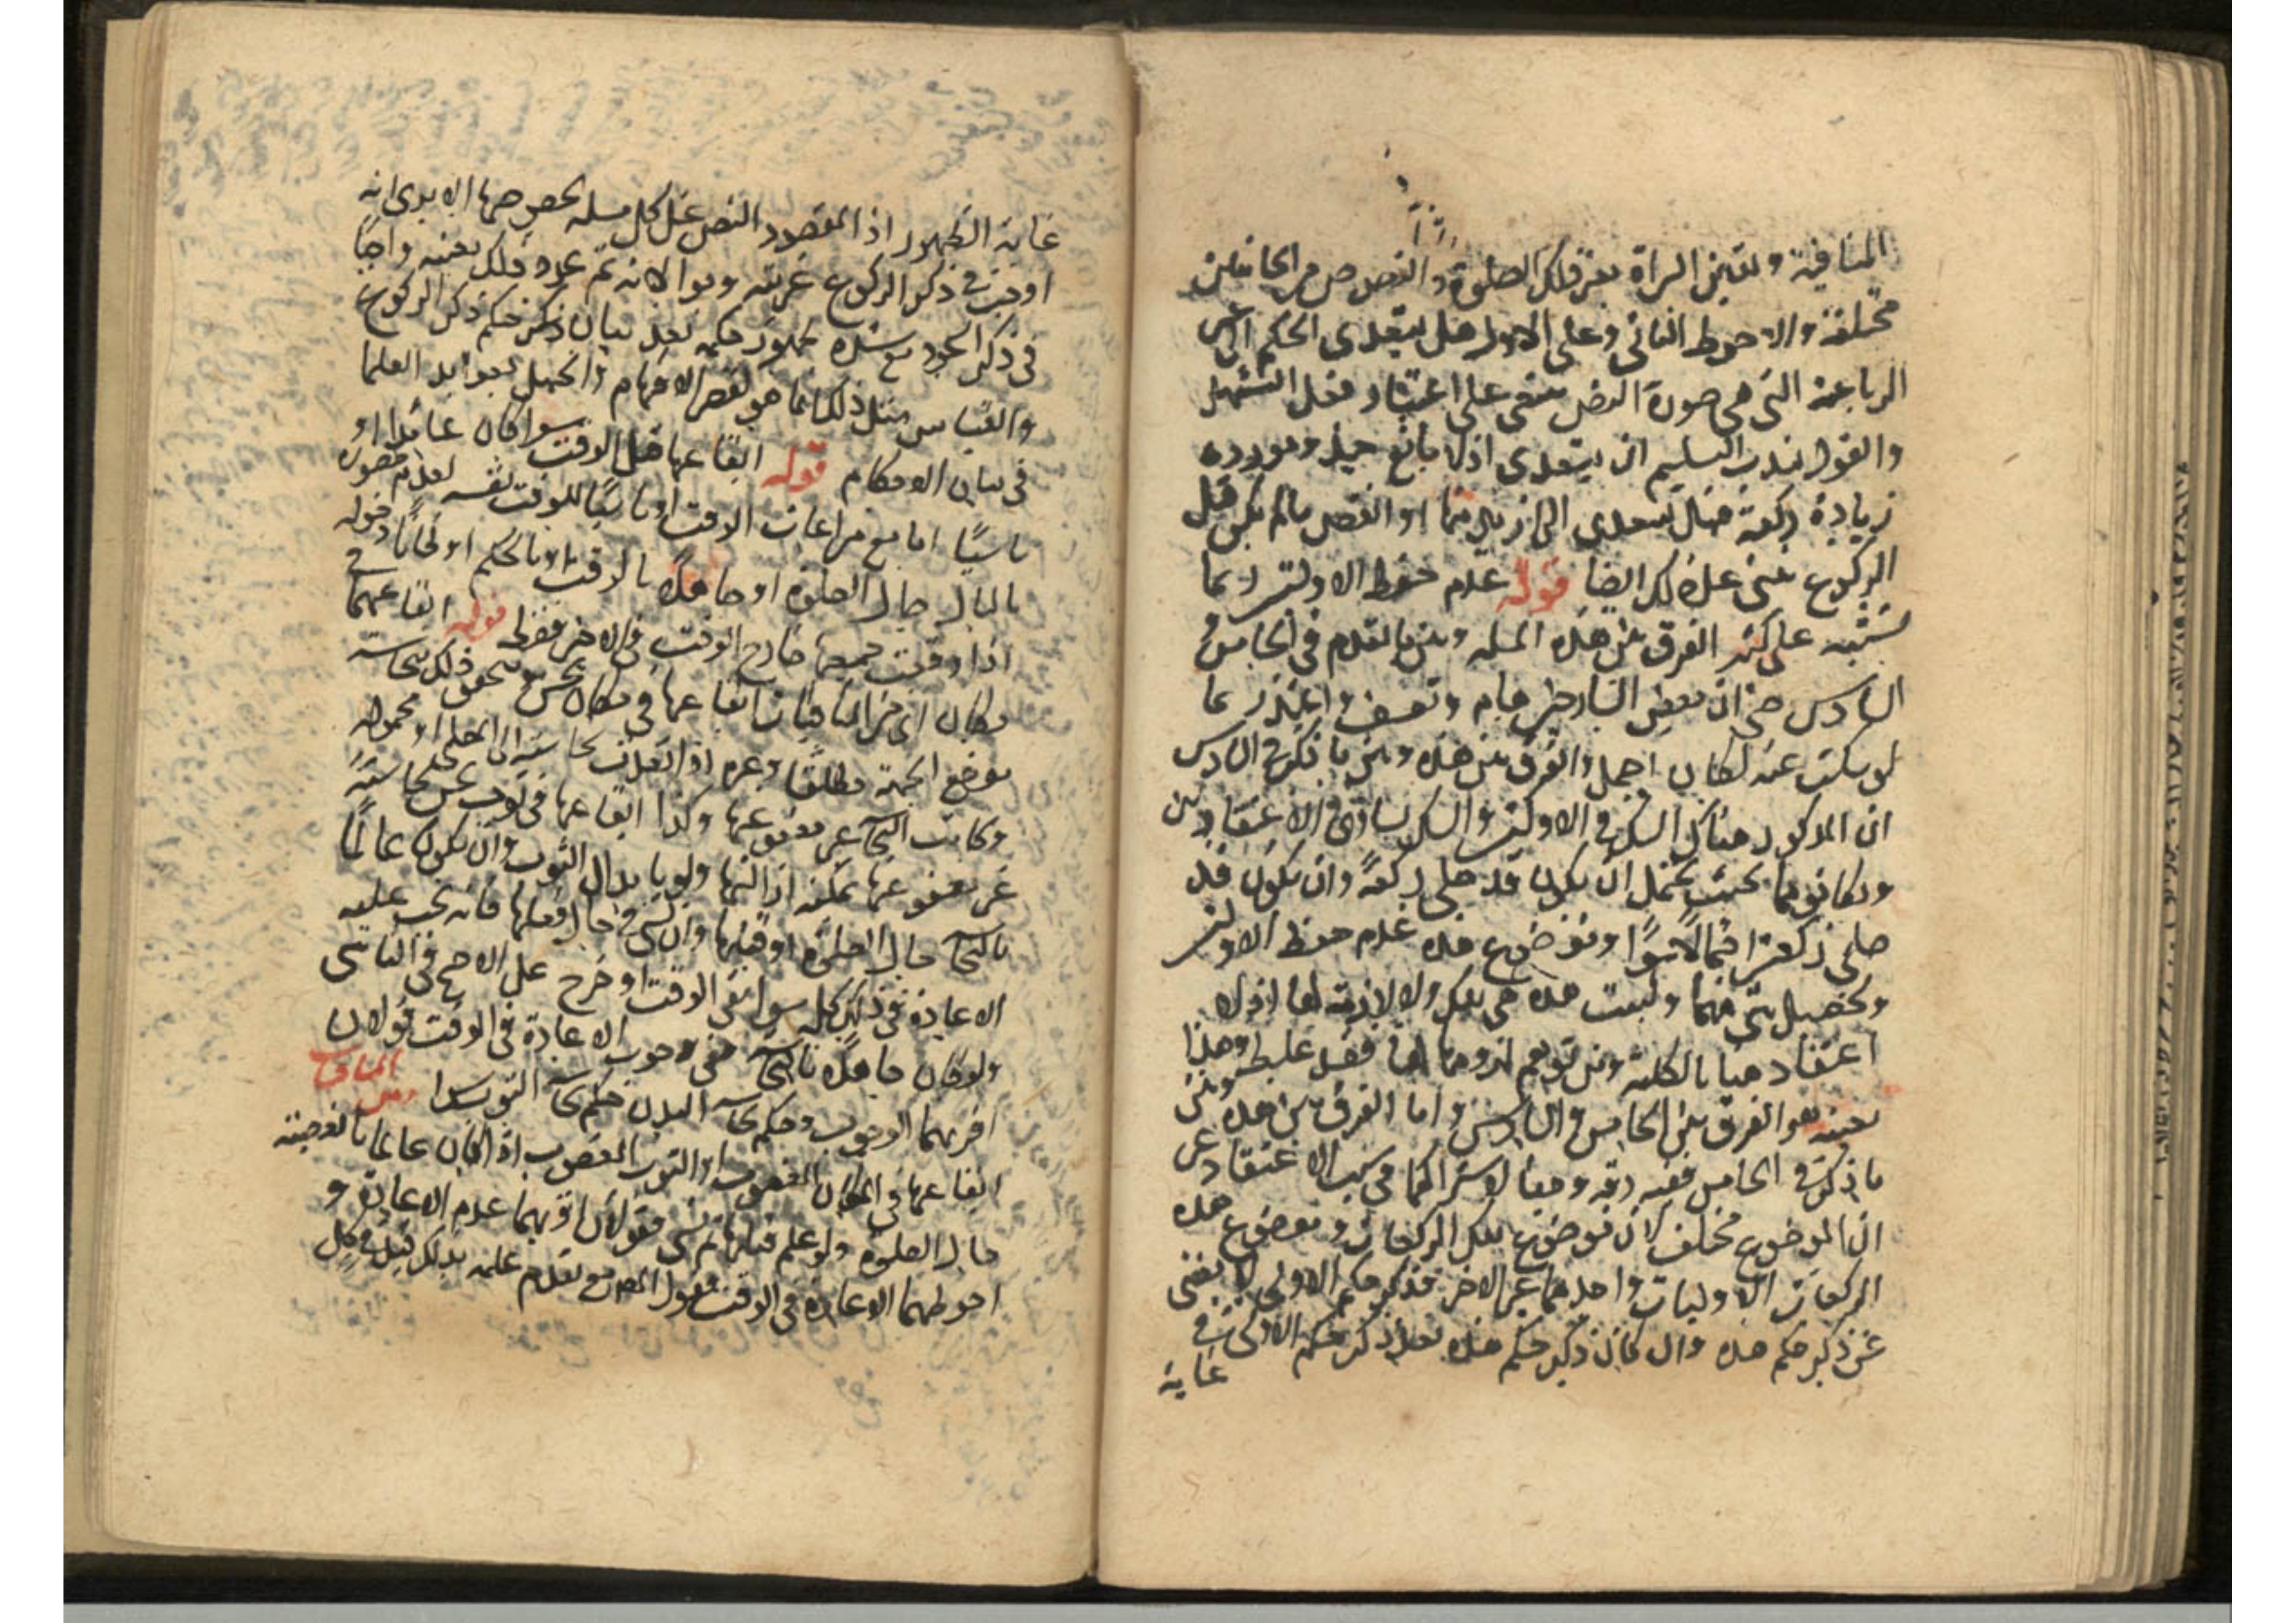 المنافية وتيقن البراة بعد تلك الصلوة والنصوص من الجانبين
مختلفة والاحوط الثاني وعلى الاول هل يتعدى الحكم الى غير
الرباعية التي هي صورة النص مبنى على اعتبار فعل التشهد
والقول بندب التسليم ان يتعدى اذ لا مانع حينئذ ومورده
زيادة ركعة فهل يتعدى الى ازيد منها او النقص ما لم يكن قبل
الركوع مبنى على ذلك ايضا قوله عدم حفظ الاولتين ربما
يشتبه على كثير الفرق بين هذه المسله وبين ما تقدم في الخامس و
السادس حتى ان بعض الشارحين هام وتعسف واعتذر بما
لو سكت عنه لكان اجمل والفرق بين هذه وبين ما ذكر في السادس
ان المذكور هناك الشك في الاولتين والشك تساوى الاعتقادين
وتكافوهما بحيث يحتمل ان يكون قد صلى ركعة وان يكون قد
صلى ركعتين احتمالا سوا وموضوع هذه عدم حفظ الاولتين
وتحصيل شي منهما وليست هذه هي تلك ولا لازمة لها اذ لا
اعتقاد هنا بالكلية ومن توهم لزومها لها فقد غلط وهذا
بعينه هو الفرق بين الخامس والسادس واما الفرق بين هذه وبين
ما ذكر في الخامس ففيه دقة وخفا لاشتراكهما في سلب الاعتقاد غير
ان الموضوع مختلف لان موضوع تلك الركعات وموضوع هذه
الركعات الاوليات واحدهما غير الاخر فذكر حكم الاولى لا يغنى
عن ذكر حكم هذه وان كان ذكر حكم هذه بعد ذكر حكم الاولى في
غاية
غاية الظهور اذ المقصود النص على كل مسله بخصوصها الا يرى انه
اوجب في ذكر الركوع عربيته وموالاته ثم عد ذلك بعينه واجبا
في ذكر السجود مع شدة ظهور حكمه بعد بيان ذكر حكم ذكر الركوع
والقياس مثل ذلك انما هو لقصر الافهام والجهل بعوايد العلما
في بيان الاحكام قوله ايقاعها قبل الوقت سوا كان عامدا او
ناسيا اما مع مراعات الوقت او ناسيا للوقت نفسه لعدم خطوره
بالبال حال الصلوة او جاهلا بالوقت او بالحكم او ظانا دخوله
اذا وقعت جميعها خارج الوقت في الاخر فقط قوله ايقاعها في
مكان اى من المنافيات ايقاعها في مكان نجس ويتحقق ذلك بنجاسة
موضع الجبهة مطلقا وغيره اذا تعدت نجاسته الى المصلى او محموله
وكانت النجاسة غير معفو عنها وكذا ايقاعها في ثوب نجس نجاسة
غير معفو عنها يمكنه ازالتها ولو بابدال الثوب وان يكون عالما
بالنجاسة حال الصلوة او قبلها وان نسى في حال فعلها فانه يجب عليه
الاعادة في ذلك كله سوا بقى الوقت او خرج على الاصح في الناسي
ولو كان جاهلا بالنجاسة ففى وجوب الاعادة في الوقت قولان
اقربهما الوجوب وحكم نجاسة البدن حكم نجاسة الثوب ومن المنافيات
ايقاعها في المكان المغصوب او الثوب المغصوب اذا كان عالما بالغصبية
حال الصلوة ولو علم قبلها ثم نسى فقولان اقربهما عدم الاعادة و
احوطهما الاعادة في الوقت فقول المص مع تقدم علمه بذلك قيل في كل